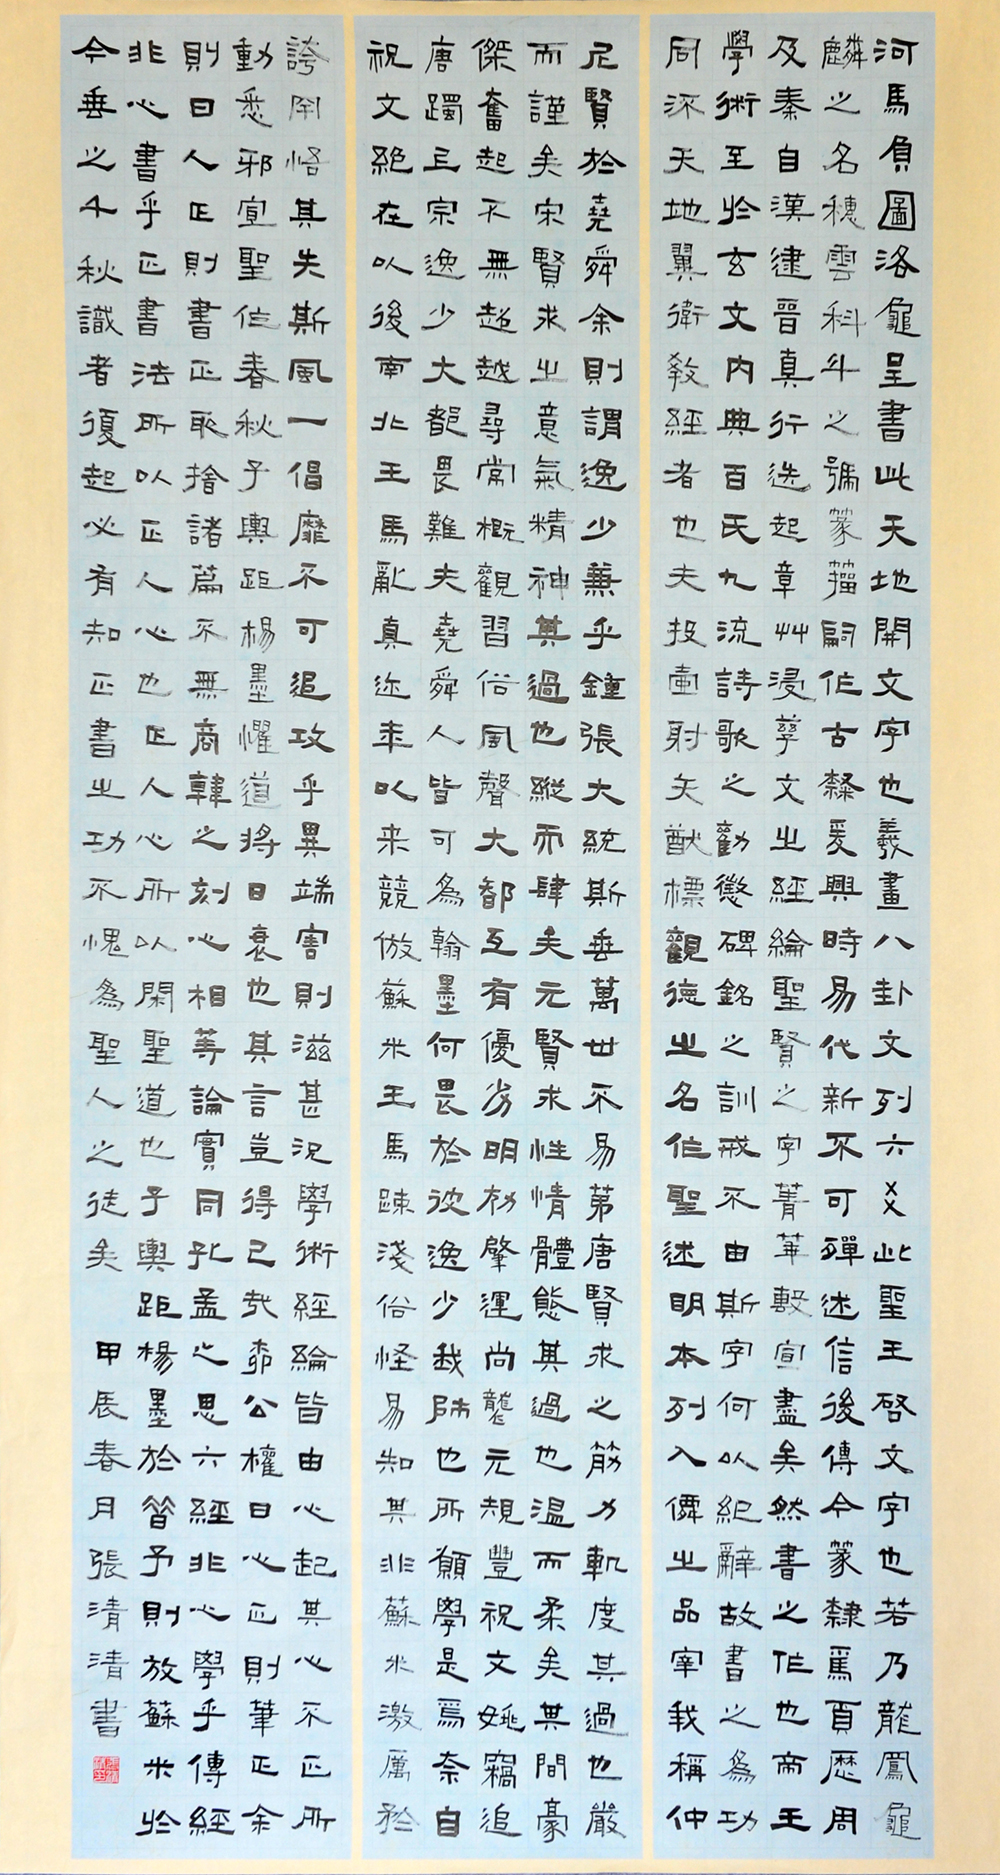 河馬負圖洛龜呈書此天地開文字也羲畫八卦文列六爻此聖王啓文字也若乃龍鳳龜
麟之名穗雲科斗之號篆籀嗣作古隸爰興時易代新不可殫述信後傳今篆隸爲頁歷周
及秦自漢逮晉真行迭起章艸浸孳文之經綸聖賢之字菁華敷宣盡矣然書之作也帝王
學術至於玄文內典百氏九流詩歌之勸懲碑銘之訓戒不由斯字何以紀辭故書之為功
同流天地翼衛教經者也夫投壺射矢猷標觀德之名作聖述明本列入儒之品宰我稱仲
尼賢於堯舜余則謂逸少兼乎鐘張大統斯垂萬世不易第唐賢求之筋力軌度其過也嚴
而謹矣宋賢求之意氣精神其過也縱而肆矣元賢求性情體態其過也溫而柔矣其間豪
傑奮起不無超越尋常概觀習俗風聲大都互有優劣明初肇運尚襲元規豐祝文姚竊追
唐躅上宗逸少大都畏難夫堯舜人皆可為翰墨何畏於彼逸少我師也所願學是焉奈自
祝文絕在以後南北王馬亂真迩年以来競倣蘇米王馬疎淺俗怪易知其非蘇米激厲矜
誇罔悟其失斯風一倡靡不可追攻乎異端害則滋甚況學術經綸皆由心起其心不正所
動悉邪宣聖作春秋子輿距楊墨懼道將日衰也其言豈得已哉柳公權曰心正則筆正余
則曰人正則書正取捨諸篇不無商韓之刻心相等論實同孔孟之思六經非心學乎傳經
非心書乎正書法所以正人心也正人心所以閑聖道也子輿距楊墨於昔予則放蘇米於
今垂之千秋識者復起必有知正書之功不愧為聖人之徒矣 甲辰春月張清清書